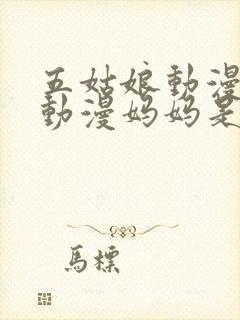 五姑娘動漫
動漫妈妈是
馬標